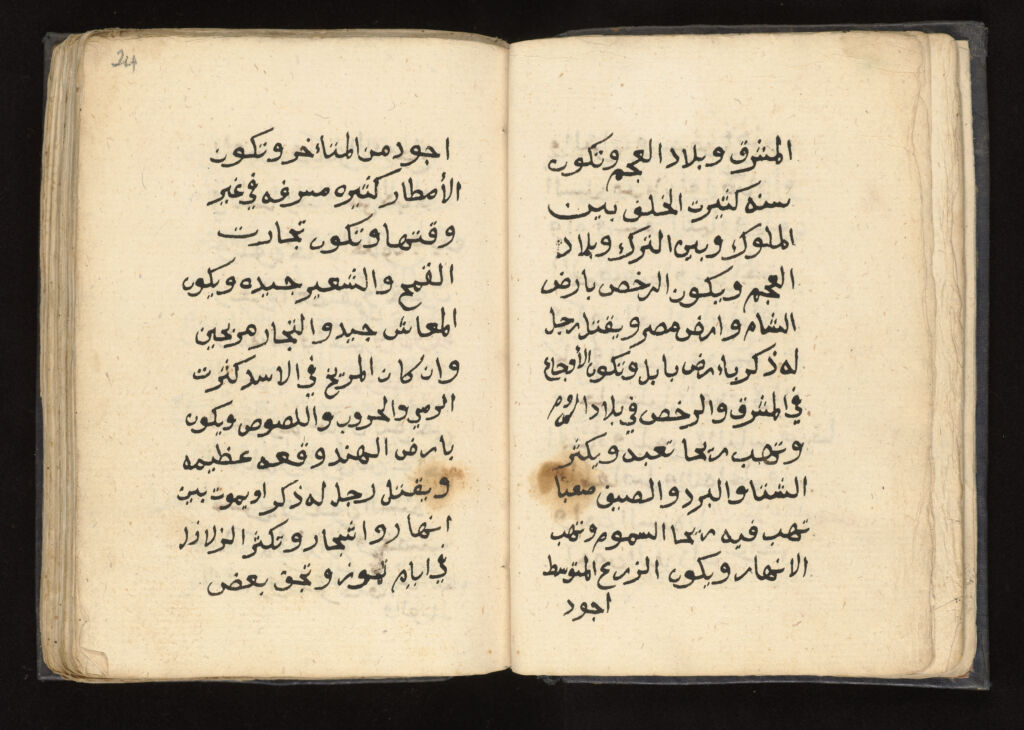 المشرق وبلاد العجم وتكون
سنه كثيرت الخلف بين
الملوك وبين الترك وبلاد
العجم ويكون الرخص بارض
الشام وارض مصر ويقتل رجل
له ذكر باءرض بابل وتكون الأوجاع
في المشرق والرخص في بلاد الروم
وتهب ريحا تعبه ويكثر
الشتا والبرد والصيف صعبا
تهب فيه ريحا السموم وتهب
الانهار ويكون الزرع المتوسط
اجود
24
اجود من المتاءخر وتكون
الأمطار كثيره مسرفه في غير
وقتها وتكون تجارت
القمح والشعير جيده ويكون
المعاش جيد والتجار مربحين
وان كان المريخ في الاسد كثرت
الرمي والحروب واللصوص ويكون
بارض الهند وقعه عظيمه
ويقتل رجل له ذكر او يموت بين
انهار واشجار وتكثر الزلازل
في ايام تموز وتحق بعض